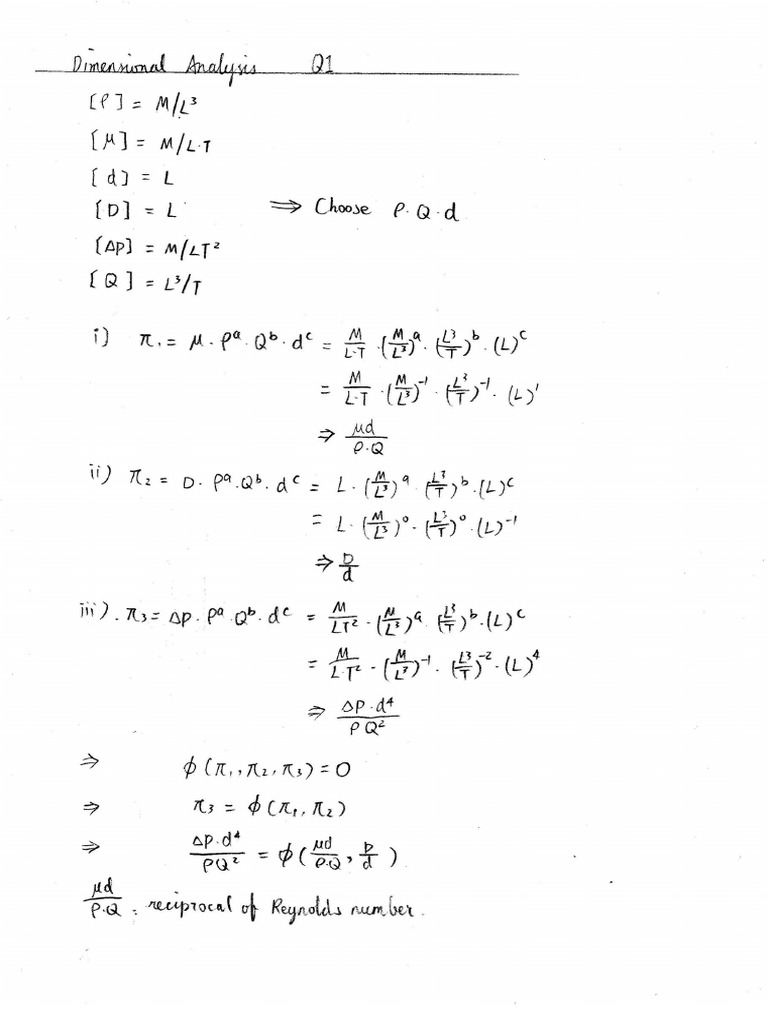 Dimensional Analysis Q1
[ρ] = M/L³
[μ] = M/L·T
[d] = L
[D] = L ⇒ Choose ρ·Q·d
[ΔP] = M/LT²
[Q] = L³/T
i) π₁ = μ·ρᵃ·Qᵇ·dᶜ = M/L·T · (M/L³)ᵃ · (L³/T)ᵇ · (L)ᶜ
= M/L·T · (M/L³)⁻¹ · (L³/T)⁻¹ · (L)¹
⇒ μd/ρ·Q
ii) π₂ = D·ρᵃ·Qᵇ·dᶜ = L·(M/L³)ᵃ·(L³/T)ᵇ·(L)ᶜ
= L·(M/L³)⁰·(L³/T)⁰·(L)⁻¹
⇒ D/d
iii). π₃ = ΔP·ρᵃ·Qᵇ·dᶜ = M/LT² · (M/L³)ᵃ · (L³/T)ᵇ·(L)ᶜ
= M/L·T² · (M/L³)⁻¹ · (L³/T)⁻² · (L)⁴
⇒ ΔP·d⁴/ρQ²
⇒ φ(π₁, π₂, π₃) = 0
⇒ π₃ = φ(π₁, π₂)
⇒ ΔP·d⁴/ρQ² = φ(μd/ρ·Q, D/d)
μd/ρ·Q : reciprocal of Reynolds number.